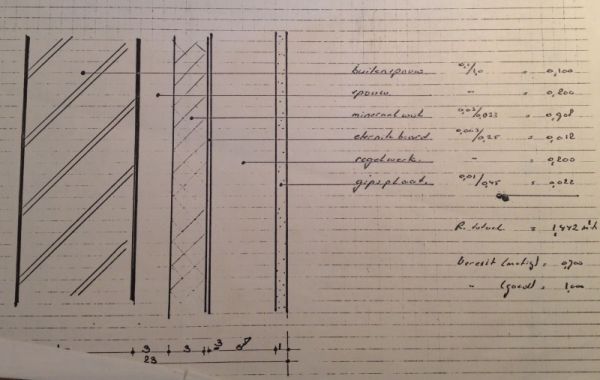 buitenspouw 0,1/1,0 = 0,100
spouw - = 0,200
mineraalwol 0,03/0,033 = 0,908
eterniteboard 0,003/0,25 = 0,012
regelwerk - = 0,200
gipsplaat 0,01/0,45 = 0,022
R. totaal = 1,442
Vereist (matig) = 0,700
" (goed) = 1,000
3 3 3 1
23